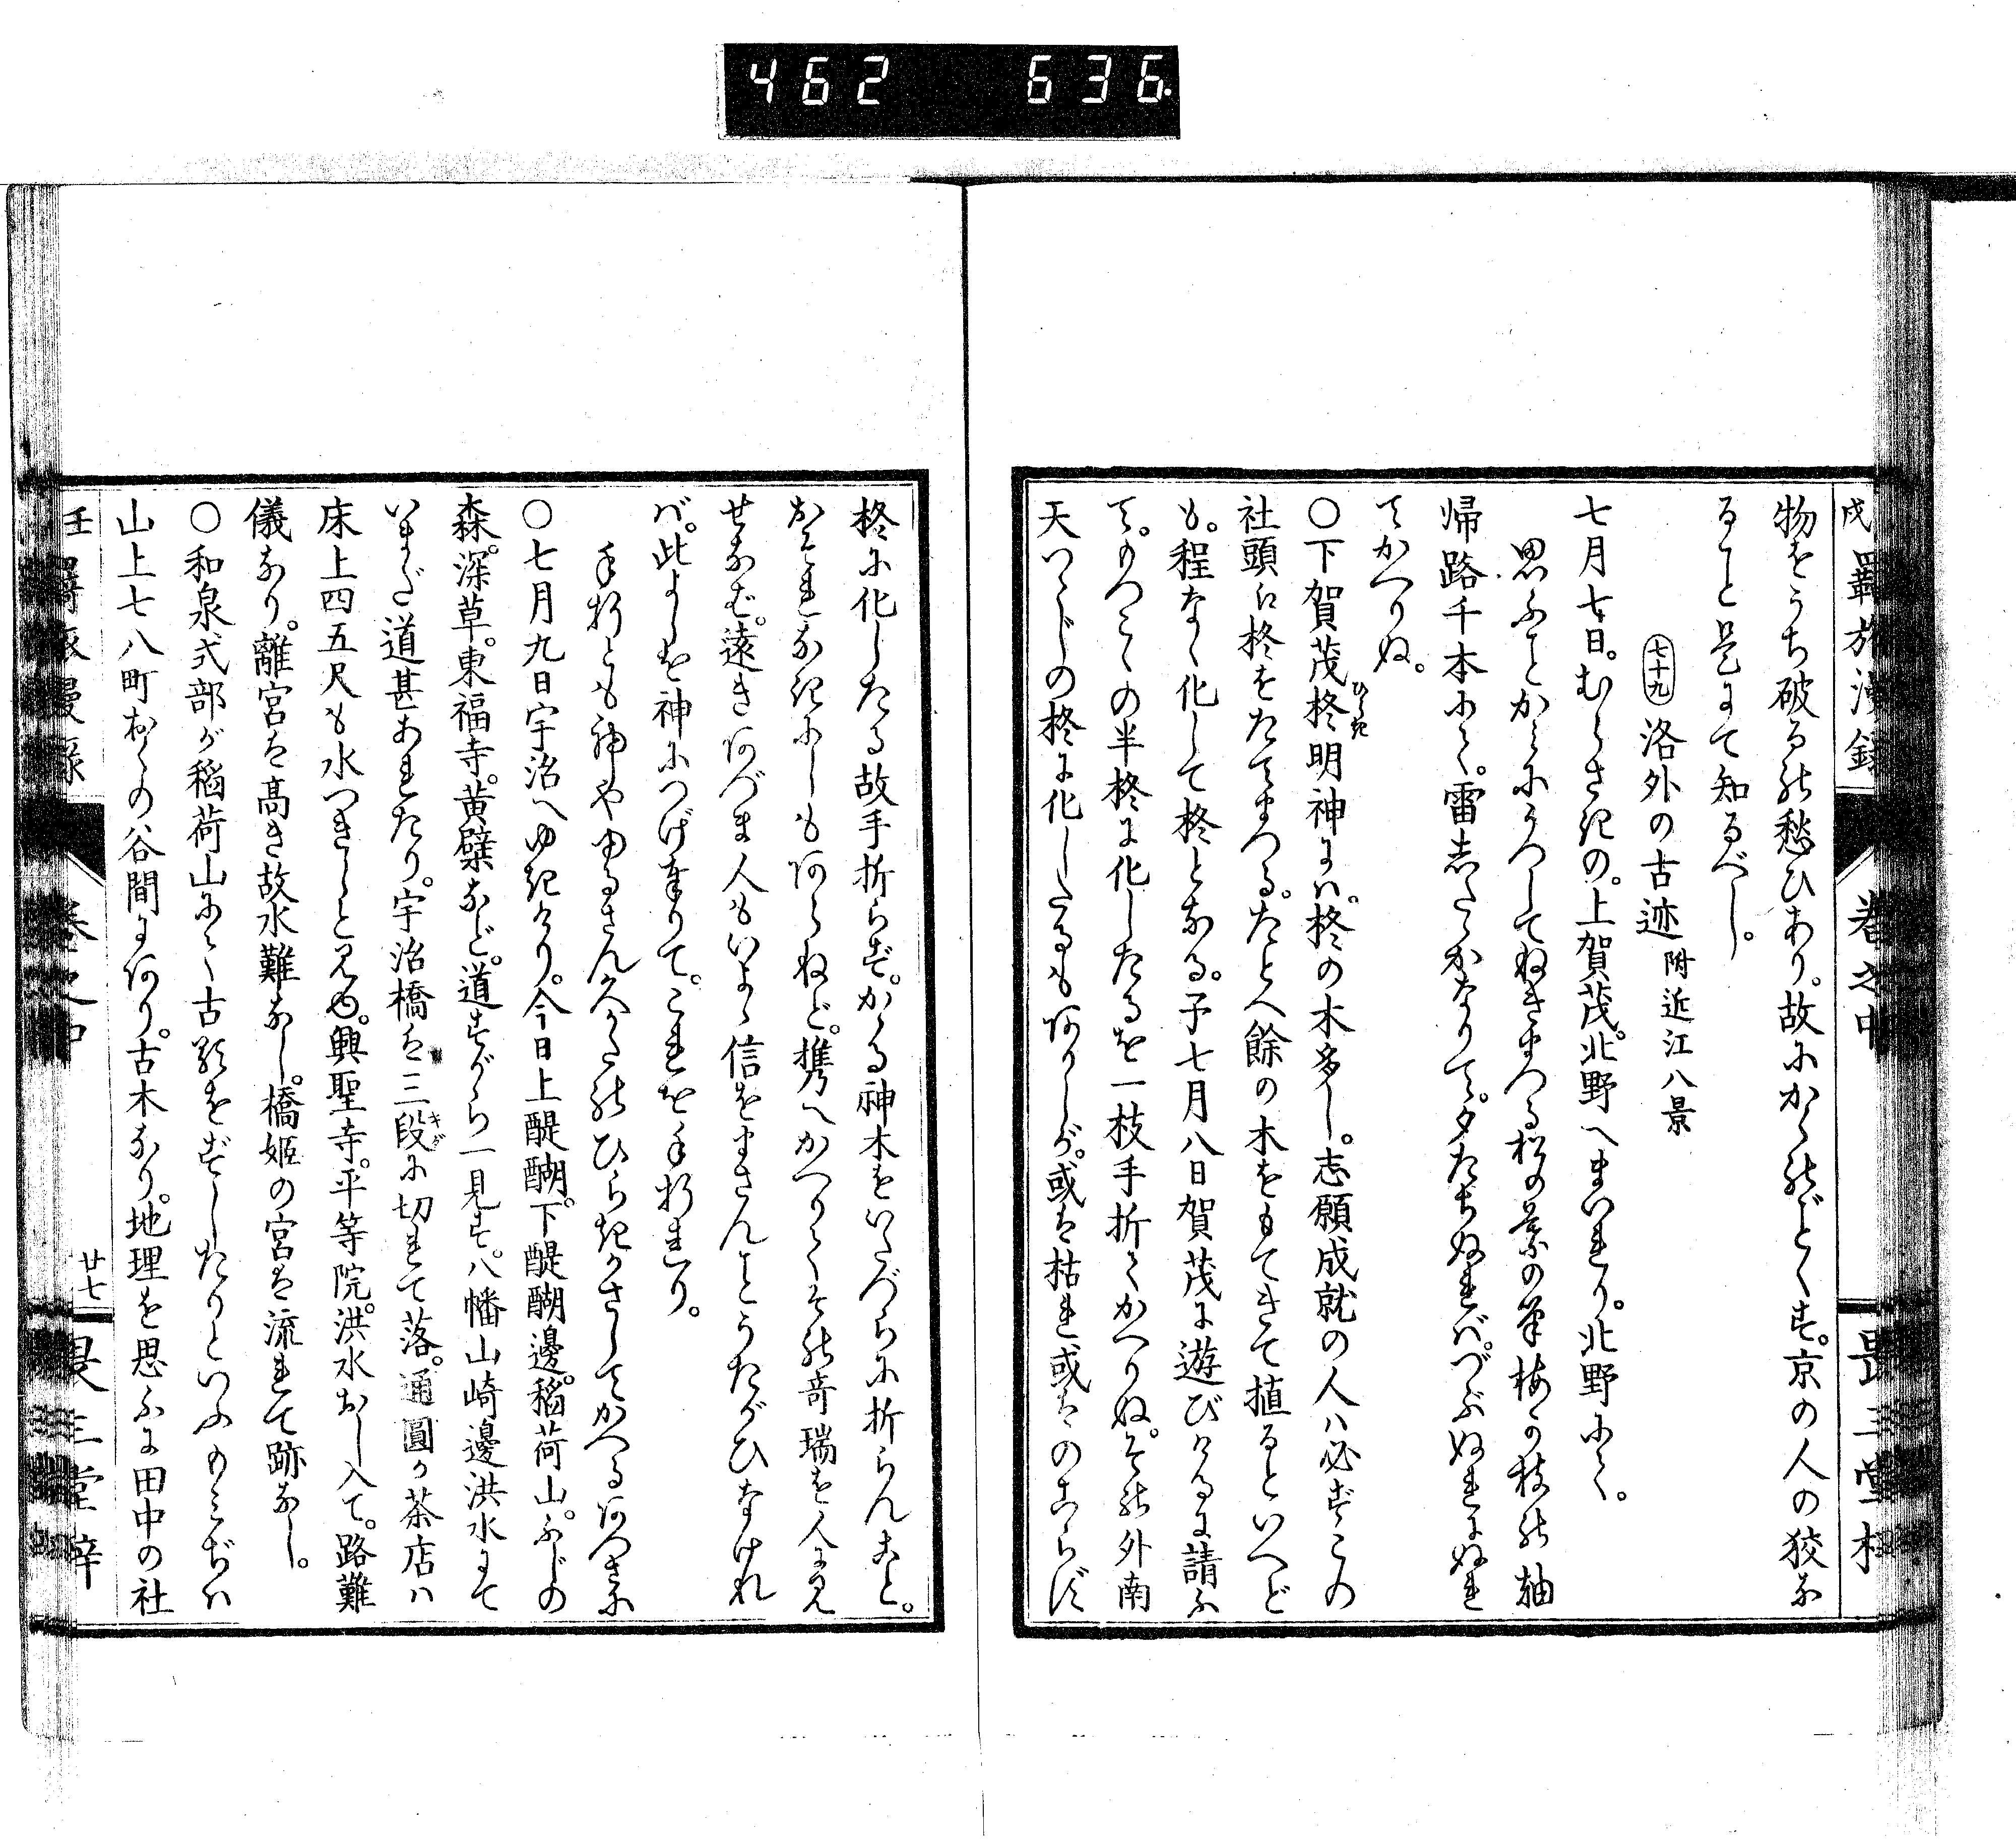 462 636
羈旅漫録 巻之中 畏三堂梓
物をうち破るの愁ひあり。故にかくのごとくす。京の人の狡な
ること是にて知るべし。
七十九 洛外の古迹 附近江八景
七月七日。むらさきの。上賀茂。北野へまいれり。北野にて。
思ふことかくにうつしてねぎまつる松の葉の筆梅の枝の軸
帰路千本にて。雷したゝかなりて。夕たちぬれば。づぶぬれにぬれ
てかへりぬ。
〇下賀茂柊明神には。柊の木多し。志願成就の人は必ずこの
社頭に柊をたてまつる。たとへ餘の木をもてきて植るといへど
も。程なく化して柊となる。予七月八日賀茂に遊びけるに請ふ
て。もつこくの半柊に化したるを一枝手折てかへりぬ。その外南
天つゝじの柊に化したるもありしが。或は枯れ或はのこらず
柊に化したる故手折らず。かゝる神木をいたづらに折らんこと。
おそれなきにしもあらねど。携へかへりてその奇瑞を人に見
せなば。遠きあづま人もいよゝ信をまさんことうたがひなけれ
ば。此よしを神につげ奉りて。これを手折れり。
手折とも神やゆるさんへたのひらきかさしてかへるあつさに
〇七月九日宇治へゆきけり。今日上醍醐。下醍醐邊。稲荷山。ふぢの
森。深草。東福寺。黄檗など。道すがら一見す。八幡山崎邊洪水にて
いまだ道甚あれたり。宇治橋は三段に切れて落。通圓が茶店は
床上四五尺も水つきしと見ゆ。興聖寺。平等院。洪水おし入て。路難
儀なり。離宮は高き故水難なし。橋姫の宮は流れて跡なし。
〇和泉式部が稲荷山にて古歌をずしたりといふもみぢは
山上七八町おくの谷間にあり。古木なり。地理を思ふに田中の社
壬 羈旅漫録 巻之中 廿七 畏三堂梓